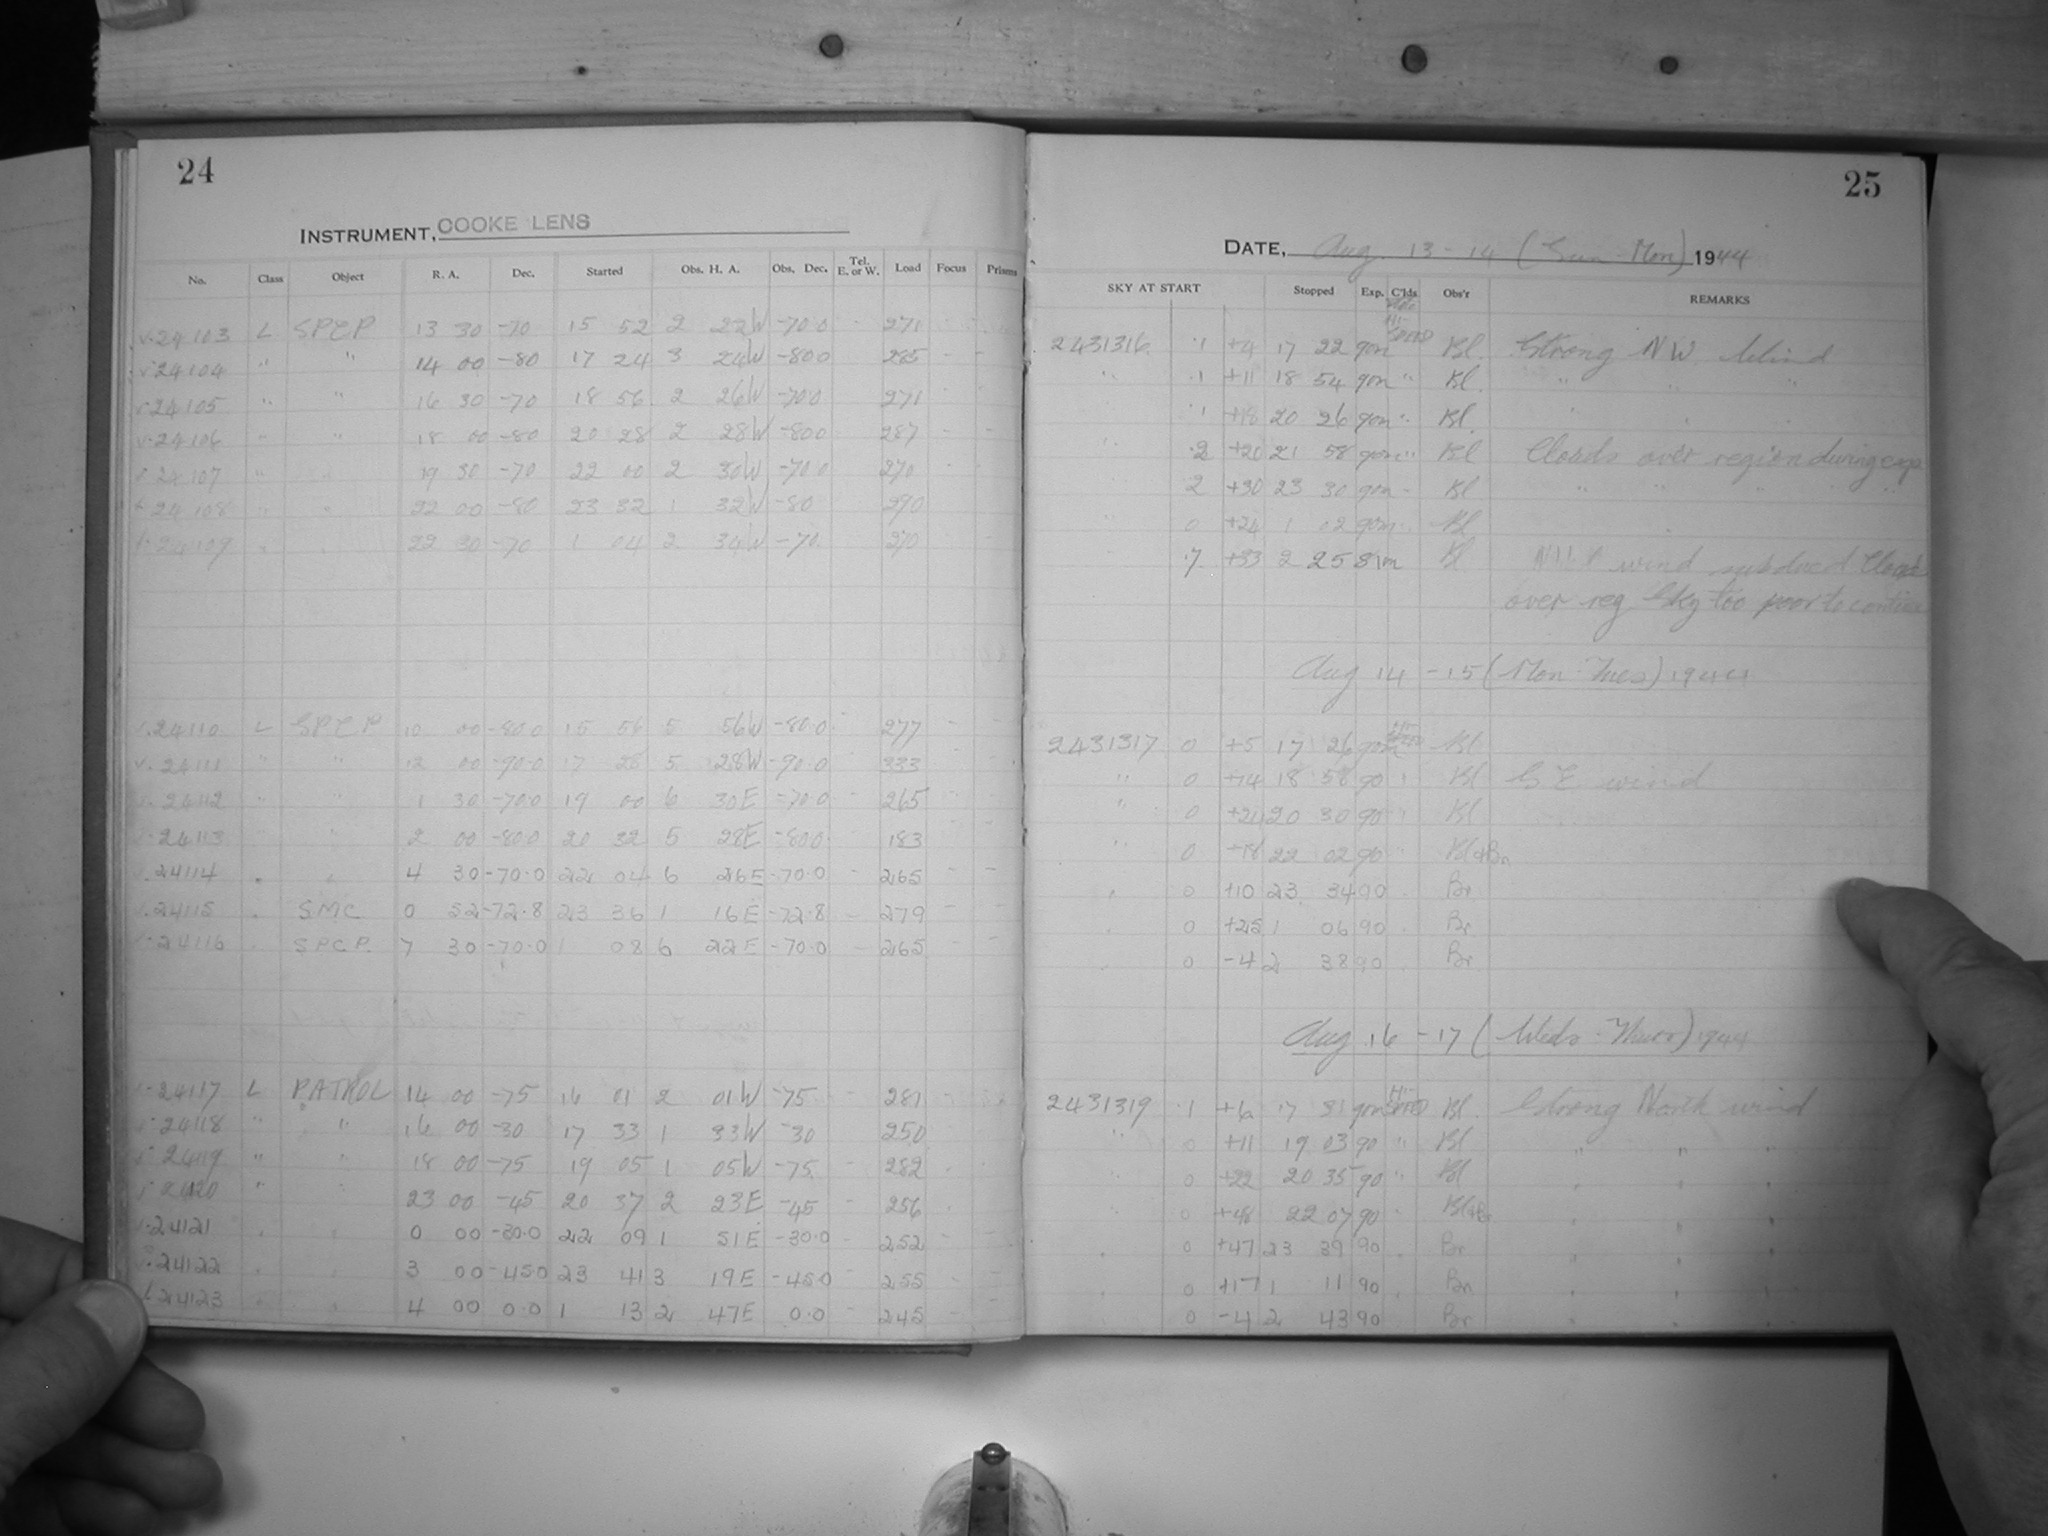 24
INSTRUMENT, COOKE LENS
No. Class Object R. A. Dec. Started Obs. H. A. Obs. Dec. Tel. E. or W. Load Focus Prisms
24103 L SPCP 13 30 -70 15 52 2 22W -70.0 271
24104 " " 14 00 -80 17 24 3 24W -80.0 285
24105 " " 16 30 -70 18 56 2 26W -70.0 271
24106 " " 18 00 -80 20 28 2 28W -80.0 287
24107 " " 19 30 -70 22 00 2 30W -70.0 270
24108 " " 22 00 -80 23 32 1 32W -80 290
24109 " " 22 30 -70 1 04 2 34W -70 270
24110 L SPCP 10 00 -80.0 15 56 5 56W -80.0 277
24111 " " 12 00 -90.0 17 28 5 28W -90.0 333
24112 " " 1 30 -70.0 19 00 6 30E -70.0 265
24113 " " 2 00 -80.0 20 32 5 28E -80.0 183
24114 " " 4 30 -70.0 22 04 6 26E -70.0 265
24115 " SMC 0 52 -72.8 23 36 1 16E -72.8 279
24116 " SPCP. 7 30 -70.0 1 08 6 22E -70.0 265
24117 L PATROL 14 00 -75 16 01 2 01W -75 281
24118 " " 16 00 -30 17 33 1 33W -30 250
24119 " " 18 00 -75 19 05 1 05W -75 282
24120 " " 23 00 -45 20 37 2 23E -45 256
24121 " " 0 00 -30.0 22 09 1 51E -30.0 252
24122 " " 3 00 -45.0 23 41 3 19E -45.0 255
24123 " " 4 00 0.0 1 13 2 47E 0.0 245
25
DATE, Aug. 13 - 14 (Sun - Mon) 1944
SKY AT START Stopped Exp. C'lds Obs'r REMARKS
2431316 .1 +9 17 22 90m Bl. Strong NW Wind
" .1 +11 18 54 90m " Bl. " " "
" .1 +18 20 26 90m " Bl. " " "
" .2 +20 21 58 90m " Bl Clouds over region during exp
2 +30 23 30 90m " Bl " " " "
" 0 +24 1 02 90m " Bl
.7 +33 2 25 81m Bl wind subdued Clouds
over reg Sky too poor to continue
Aug 14 - 15 (Mon - Tues) 1944
2431317 0 +5 17 26 90m Bl
" 0 +14 18 58 90 " Bl S E wind
" 0 +21 20 30 90 " Bl
" 0 +18 22 02 90 " Bl+Br
" 0 +10 23 34 90 " Br
" 0 +25 1 06 90 " Br
" 0 -4 2 38 90 " Br
Aug 16 - 17 (Weds - Thurs) 1944
2431319 .1 +6 17 31 90m Bl. Strong North wind
" 0 +11 19 03 90 " Bl " " "
" 0 +22 20 35 90 " Bl " " "
" 0 +48 22 07 90 " Bl+Br " " "
" 0 +47 23 39 90 " Br " " "
" 0 +17 1 11 90 " Br " " "
0 -4 2 43 90 Br " " "